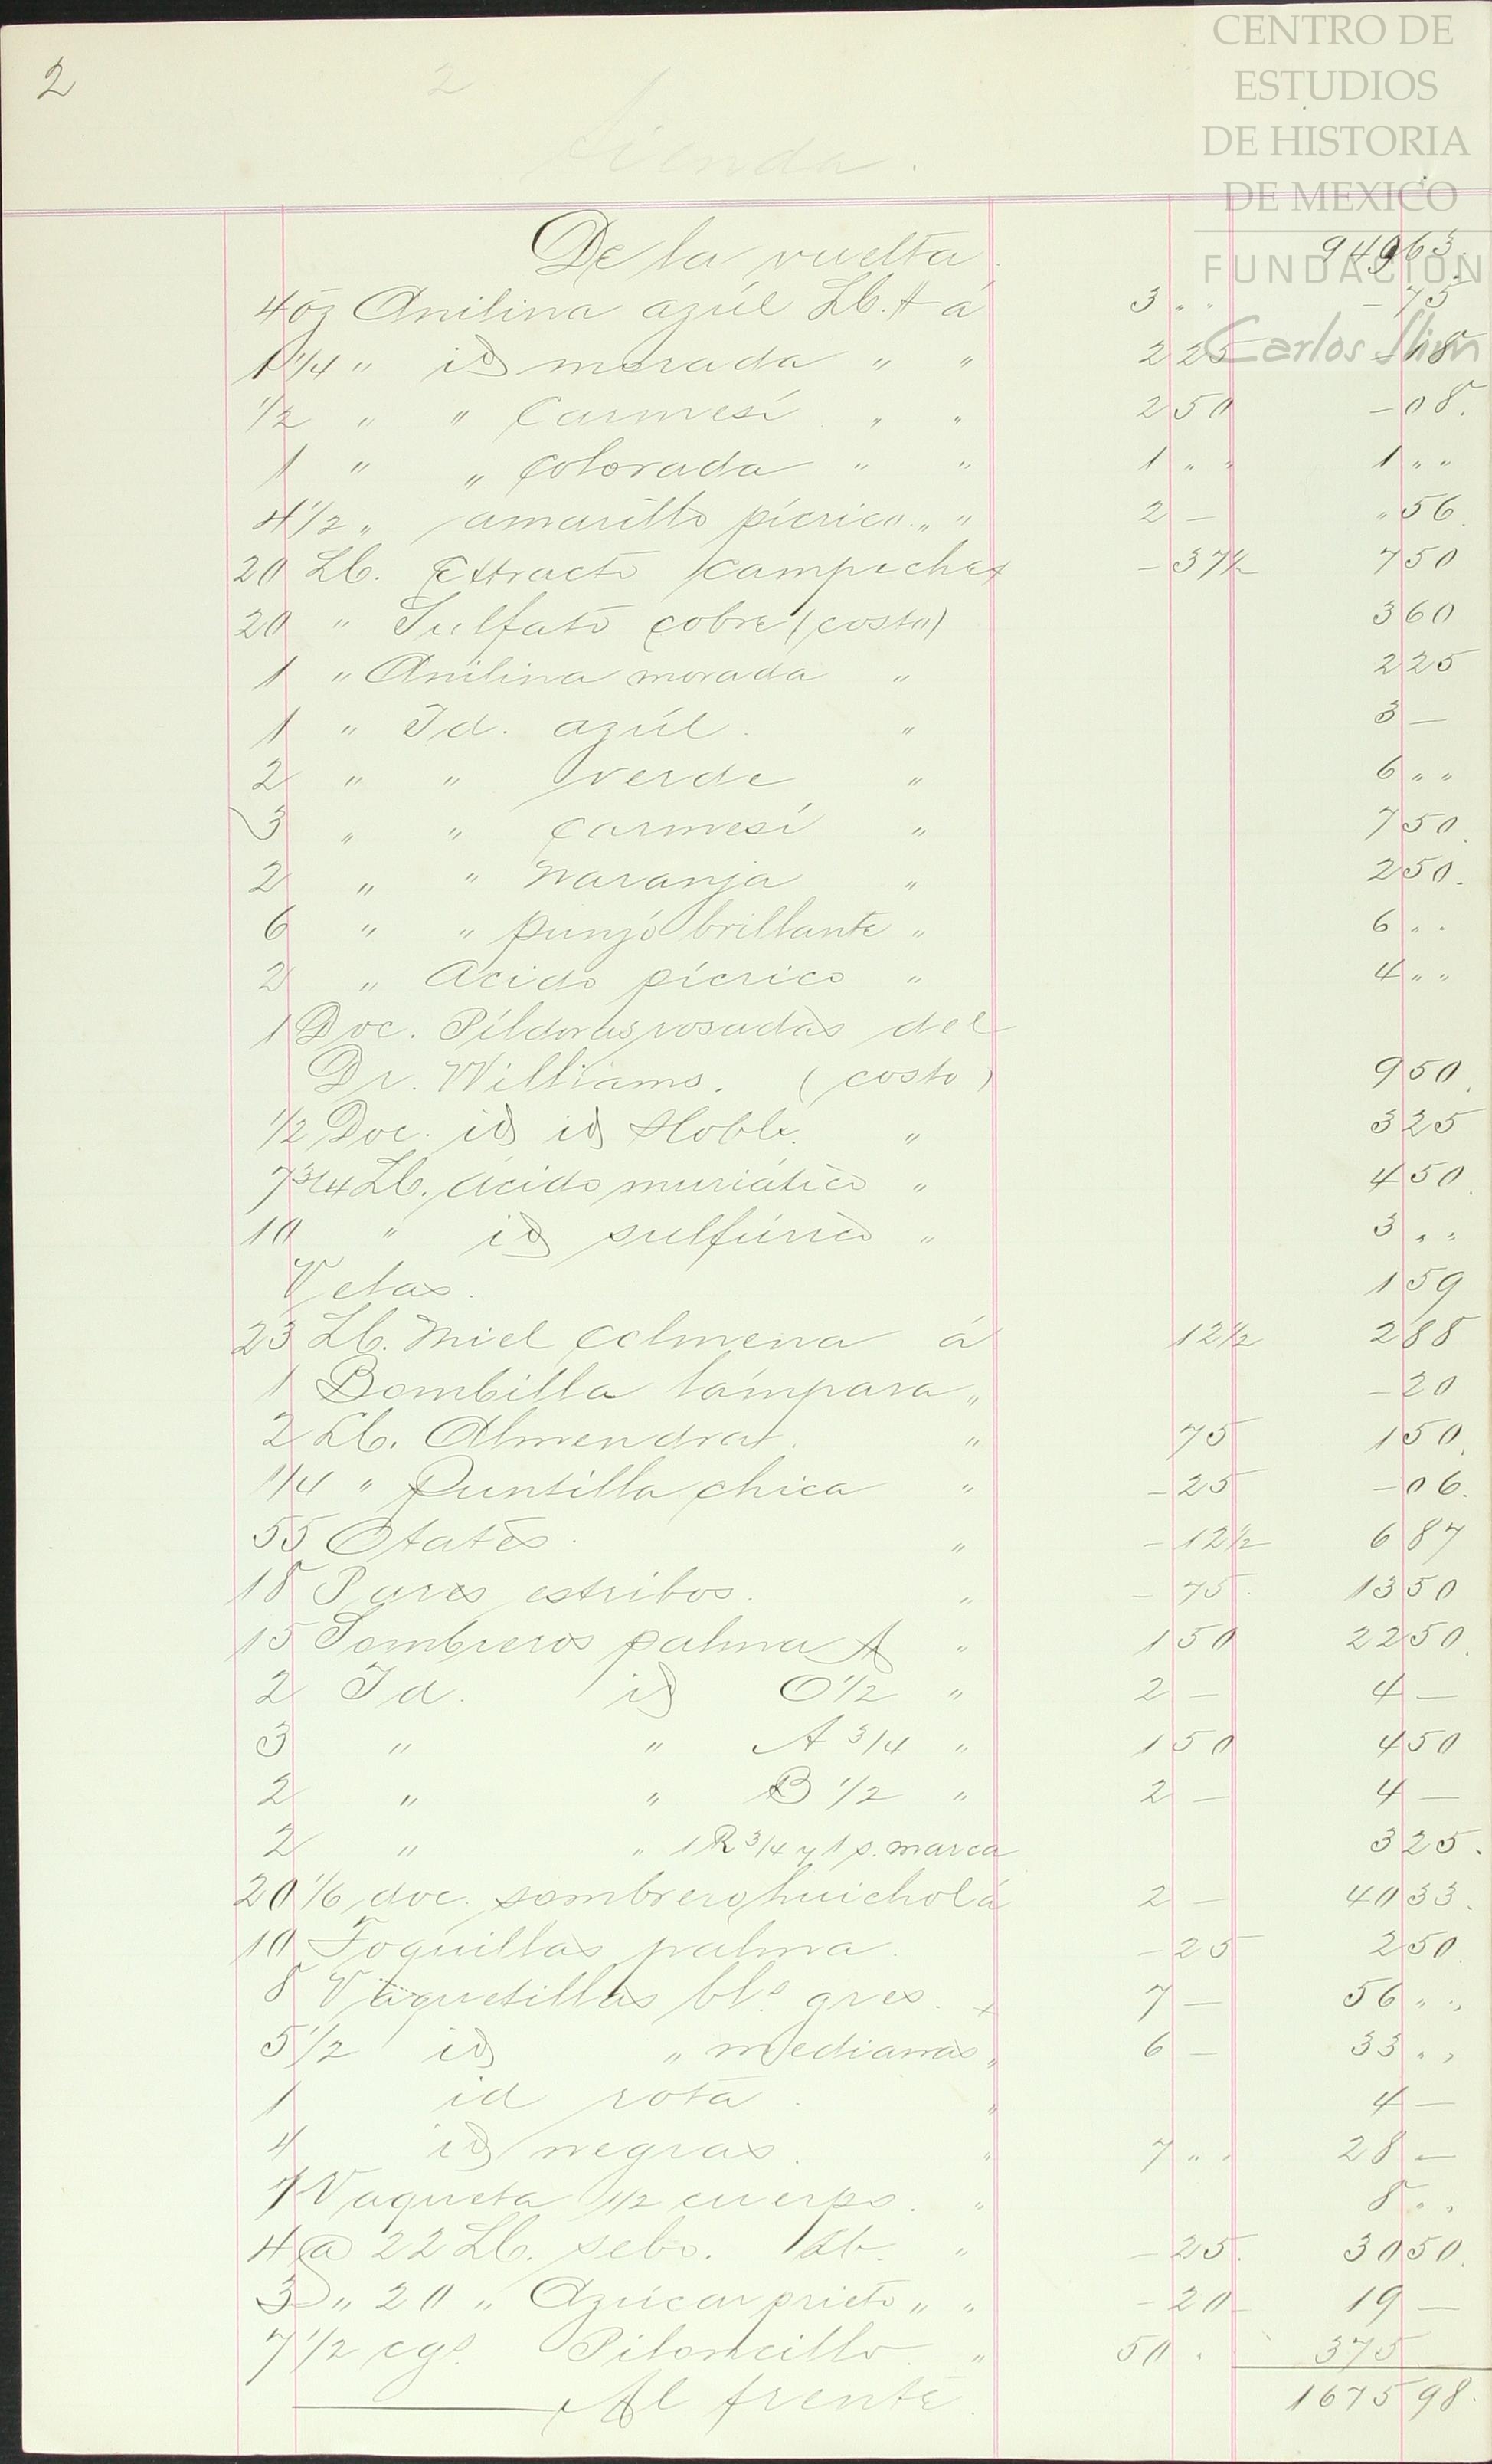 2
2
CENTRO DE
ESTUDIOS
DE HISTORIA
DE MEXICO
FUNDACIÓN
Carlos Slim
tienda.
De la vuelta. 949 63.
4 oz Anilina azúl Lb. A á 3 " " — 75
1 1/4 " id morada " " 2 25 — 18
1/2 " " Carmesí " " 2 50 — 08.
1 " " Colorada " " 1 " " 1 " "
4 1/2 " amarillo pícrico " " 2 — " 56.
20 Lb. Extracto Campeche — 37 1/2 7 50
20 " Sulfato cobre (costo) 3 60
1 " Anilina morada " 2 25
1 " Id. azúl. " 3 —
2 " " verde " 6 " "
3 " " Carmesí " 7 50.
2 " " naranja " 2 50.
6 " " punzó brillante " 6 " "
2 " Acido pícrico " 4 " "
1 Doc. Píldoras rosadas del
Dr. Williams. (costo) 9 50.
1/2 Doc. id id " 3 25
7 3/4 Lb. ácido muriático " 4 50.
10 " id sulfúrico " 3 " "
Velas. 1 59
23 Lb. Miel Colmena á 12 1/2 2 88
1 Bombilla lámpara " — 20
2 Lb. Almendra. " 75 1 50.
1/4 " Puntilla chica " — 25 — 06.
55 Otates. " — 12 1/2 6 87
18 Pares estribos. " — 75. 13 50
15 Sombreros palma A " 1 50 22 50.
2 Id. id O 1/2 " 2 — 4 —
3 " " A 3/4 " 1 50 4 50
2 " " B 1/2 " 2 — 4 —
2 " " 1 R 3/4 y 1 s. marca 3 25.
20 1/6 doc. sombrero huichol á 2 — 40 33.
10 Toquillas palma. — 25 2 50.
8 Vaquetillas bls gres. 7 — 56 " "
5 1/2 id " medianas " 6 — 33 " "
1 id rota. " 4 —
4 id negras. " 7 " " 28 —
1 Vaqueta 1/2 cuerpo. " 8 " "
4 @ 22 Lb. sebo. Lb. " — 25. 30 50.
3 " 20 " Azúcar prieto " " — 20 19 —
7 1/2 cgs. Piloncillo. " 50 " 375
Al frente. 1675 98.